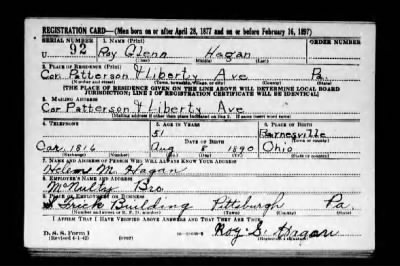 REGISTRATION CARD—(Men born on or after April 28, 1877 and on or before February 16, 1897)
SERIAL NUMBER 1. NAME (Print) ORDER NUMBER
U 92 Roy Glenn Hagan
(First) (Middle) (Last)
2. PLACE OF RESIDENCE (Print)
Cor Patterson & Liberty Ave Pa.
(Number and street) (Town, township, village, or city) (County) (State)
[THE PLACE OF RESIDENCE GIVEN ON THE LINE ABOVE WILL DETERMINE LOCAL BOARD
JURISDICTION; LINE 2 OF REGISTRATION CERTIFICATE WILL BE IDENTICAL]
3. MAILING ADDRESS
Cor Patterson & Liberty Ave
[Mailing address if other than place indicated on line 2. If same insert word same]
4. TELEPHONE 5. AGE IN YEARS 6. PLACE OF BIRTH
51 Barnesville
DATE OF BIRTH (Town or county)
Car. 1816 Aug 8 1890 Ohio
(Exchange) (Number) (Mo.) (Day) (Yr.) (State or country)
7. NAME AND ADDRESS OF PERSON WHO WILL ALWAYS KNOW YOUR ADDRESS
Helens M. Hagan
8. EMPLOYER'S NAME AND ADDRESS
McNulty Bro.
9. PLACE OF EMPLOYMENT OR BUSINESS
Frick Building Pittsburgh Pa.
(Number and street or R. F. D. number) (Town) (County) (State)
I AFFIRM THAT I HAVE VERIFIED ABOVE ANSWERS AND THAT THEY ARE TRUE.
D. S. S. Form 1
(Revised 4-1-42) (over) Roy G. Hagan
(Registrant's signature)